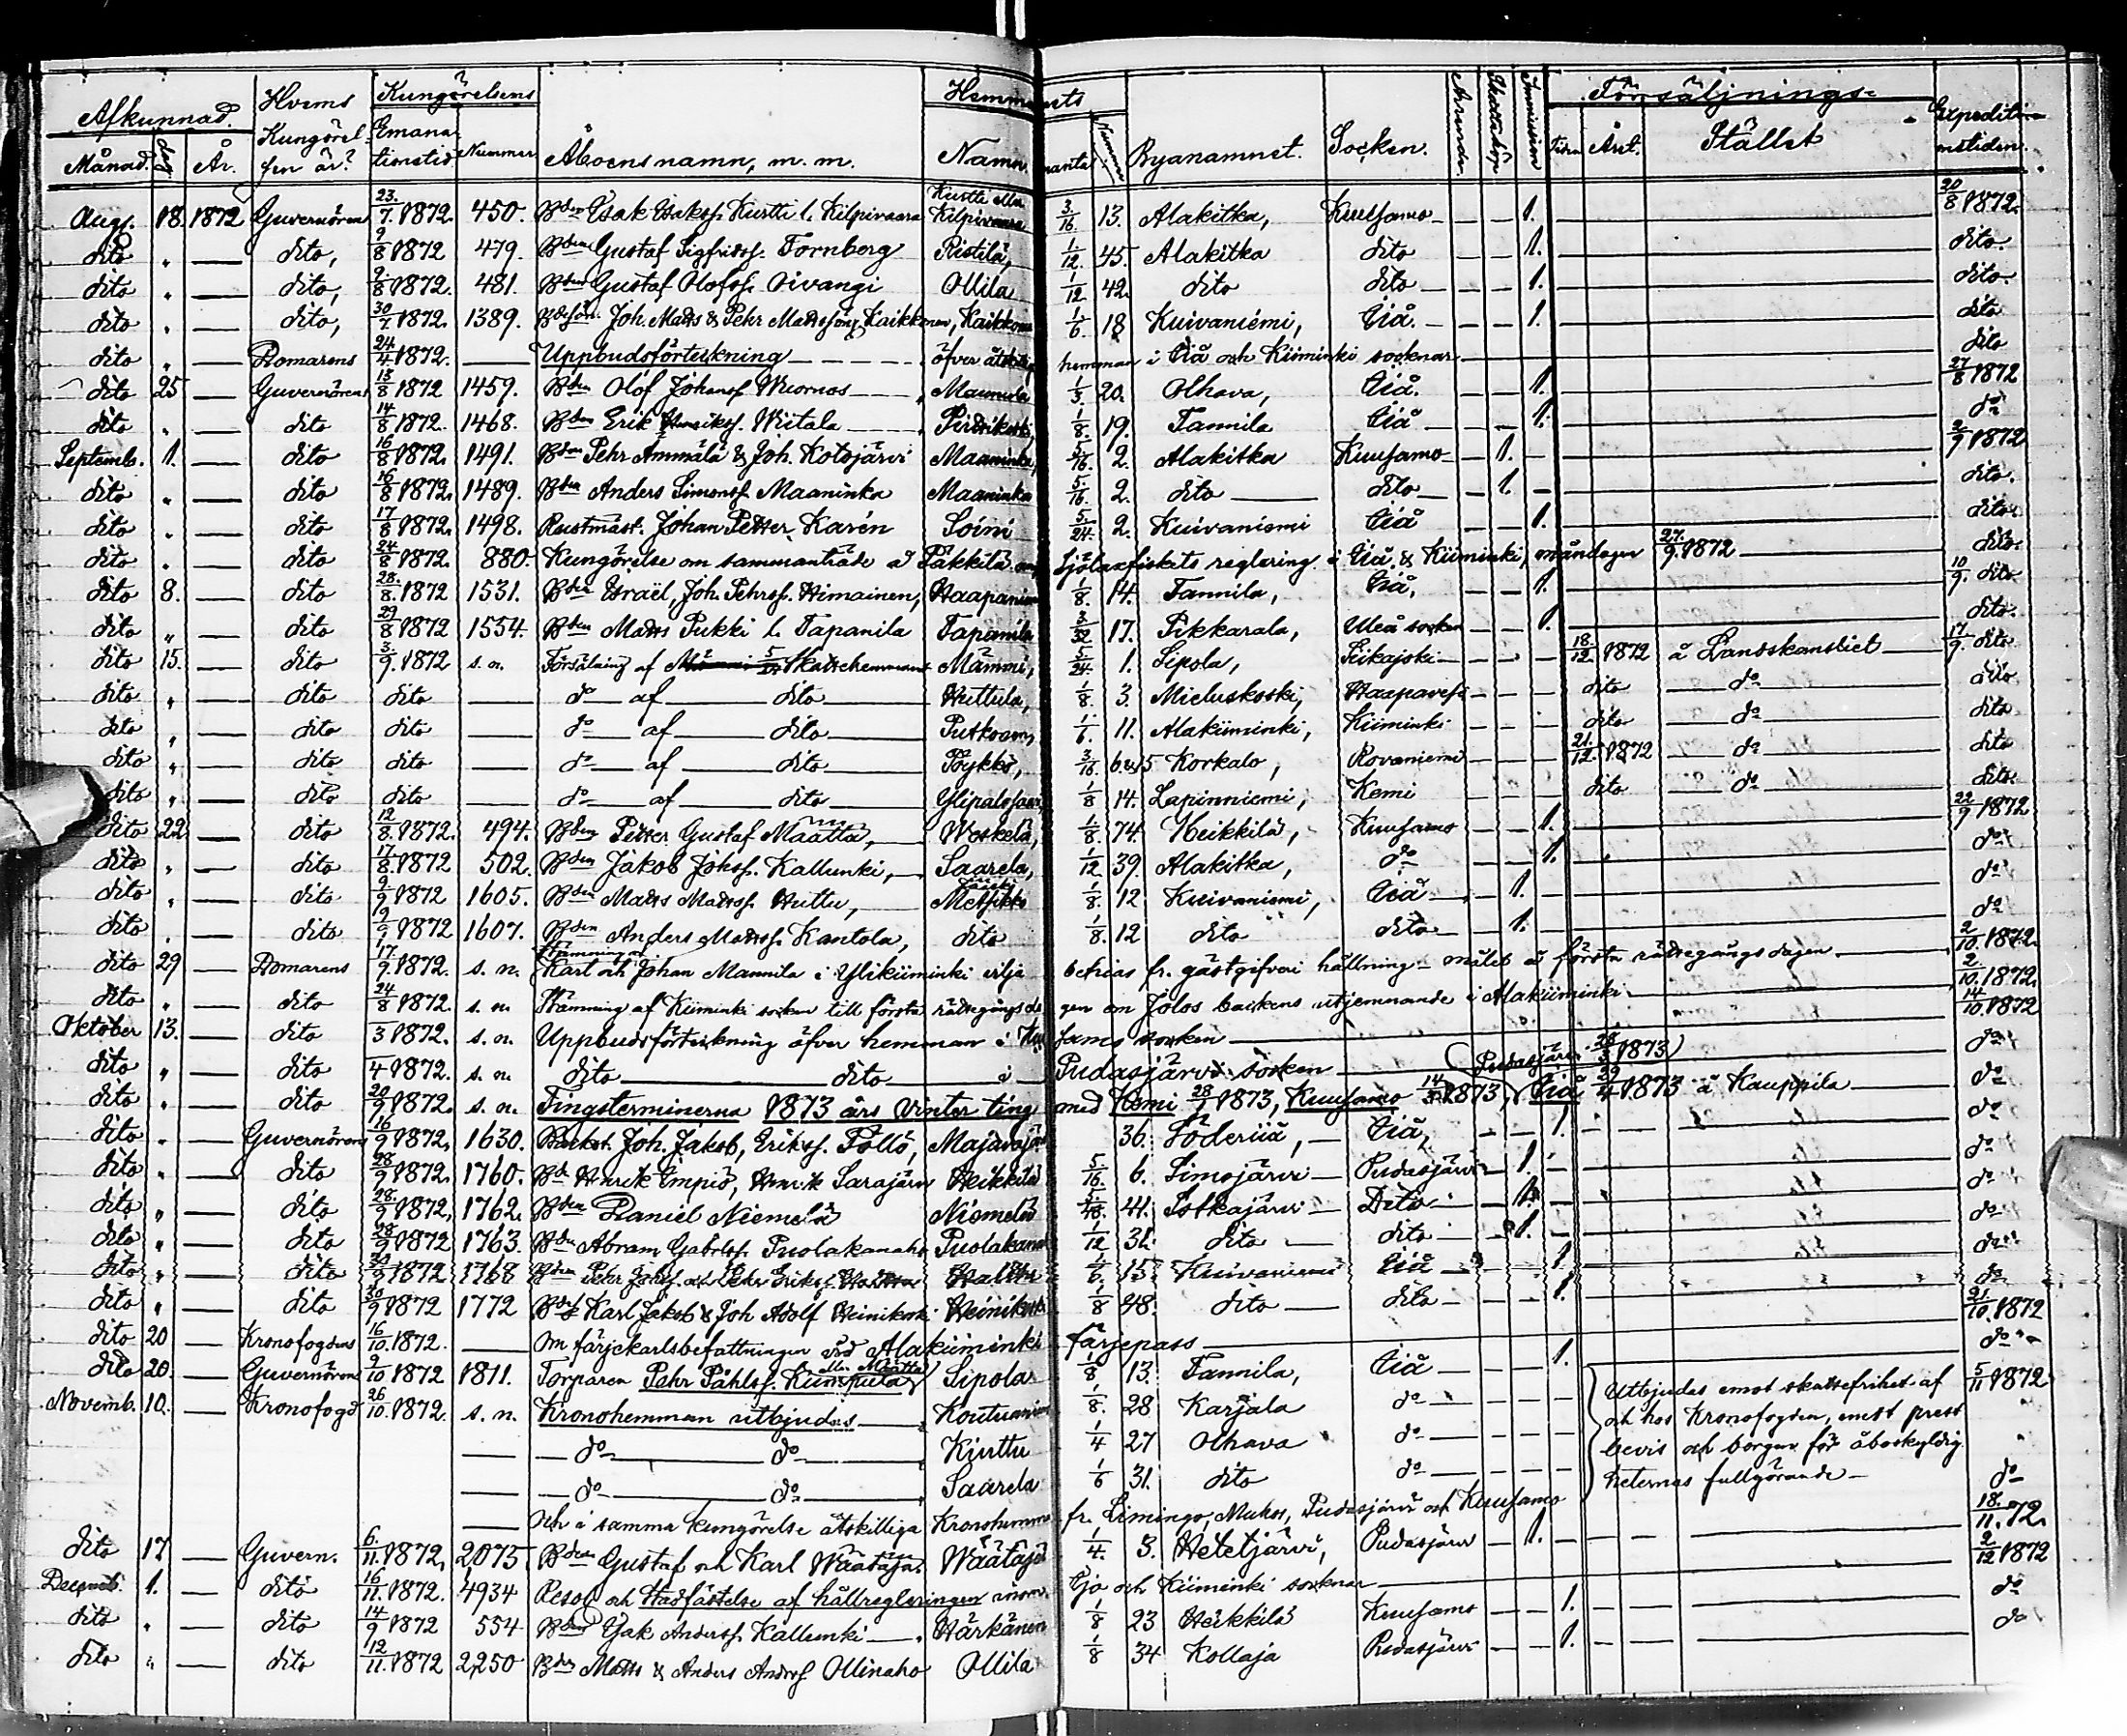 Afkunnad. Hvems Kungörelsens Hemmanets Försäljnings- Expeditions
Månad. dag År. Kungörelsen är? Emanationstid Nummer Åboens namn, m. m. Namn. mantal Nummer Byanamnet. Socken. Tiden Året. Stället
Aug. 18. 1872 Guvernörens 23/7. 1872. 450. Bden Isak Isakss. Kurtti l. Kilpivaara Kurtti eller Kilpivaara 3/16. 13. Alakitka, Kuusamo — — 1. 20/8 1872.
dito " — dito, 9/8 1872 479. Bden Gustaf Sigfridss. Tornberg Ristilä, 1/12. 45. Alakitka dito — — 1. dito.
dito " — dito, 9/8 1872. 481. Bden Gustaf Olofss. Oivangi Ollila 1/12 42. dito dito — — 1. dito.
dito " — dito, 30/7. 1872. 1389. Joh. Matts & Pehr Mattssöner Kaikkonen, Kaikkonen 1/6. 18 Kuivaniemi, Iiå. — — 1. dito
dito " — Domarens 24/4 1872. — Uppbudsförteckning — öfver åtskillige hemman i Iiå och Kiiminki socknar — dito
dito 25 — Guvernörens 13/8 1872 1459. Bden Olof Johanss. Wuornos — 1/3. 20. Olhava, Iiå. — — 1. 27/8 1872
dito " — dito 14/8 1872. 1468. Bden Erik Henrikss. Wiitala — 1/8. 19. Tannila Iiå — — 1. do
Septemb. 1. — dito 16/8 1872. 1491. Bden Pehr Ämmälä & Joh. Kotojärvi Maaninka, 5/16. 2. Alakitka Kuusamo — 1. — 2/9 1872
dito " — dito 16/8 1872. 1489. Bden Anders Simonss. Maaninka Maaninka 5/16. 2. dito — dito — 1. — dito.
dito " — dito 17/8 1872. 1498. Rustmäst. Johan Petter Karén Soini 5/24. 2. Kuivaniemi Iiå — — 1. dito
dito " — dito 24/8 1872. 880. Kungörelse om sammanträde å Päkkilä om Sjölaxfiskets reglering i Iiå & Kiiminki, måndagen 27/9. 1872 — dito
dito 8. — dito 28./8. 1872 1531. Bden Israël, Joh. Pehrss. Himainen, Haapaniemi 1/8. 14. Tannila, Iiå, — — 1. 10/9. dito
dito " — dito 29/8 1872 1554. Bden Matts Pukki l. Tapanila Tapanila 3/32 17. Pikkarala, Uleå socken — — 1. dito
dito 15. — dito 3/9. 1872 s. n. Försälning af Skattehemmanet Mämmi, 5/24. 1. Sipola, Siikajoki — — — 18/12. 1872 å Landskansliet — 17/9. dito
dito " — dito dito — do — af — dito — Huttula, 1/8. 3. Mieluskoski, Haapavesi — — — dito — do — dito
dito " — dito dito — do — af — dito — 1/6. 11. Alakiiminki, Kiiminki — — — dito — do — dito
dito " — dito dito — do — af — dito — Pöykkö, 3/16. 6 & 5 Korkalo, Rovaniemi — — — 21./12. 1872 do dito
dito " — dito dito — do — af — dito — 1/8 14. Lapinniemi, Kemi — — — dito do dito
dito 22 — dito 12/8. 1872. 494. Bden Petter Gustaf Määttä, — Weskelä, 1/8. 74. Heikkilä, Kuusamo — — 1. 22/9 1872
dito " — dito 17/8. 1872 502. Bden Jakob Johss. Kallunki, — Saarela, 1/12 39. Alakitka, do — — 1. do
dito " — dito 9/9 1872 1605. Bden Matts Mattss. Huttu, — 1/8. 12 Kuivaniemi, Iiå — 1. — do
dito " — dito 9/9 1872 1607. Bden Anders Mattss. Kantola, dito 1/8. 12 dito dito — 1. — do
dito 29 — Domarens 17/9. 1872. s. n. Stämning af Karl och Johan Mannila i Ylikiiminki vilja befrias fr. gästgifveri hållning — målet å första rättegångsdagen — 2/10. 1872.
dito " — dito 24/8 1872. s. n. Stämning af Kiiminki socken till första rättegångsdagen om Jolos backens utjemnande i Alakiiminki 2./10. 1872.
Oktober 13. — dito /3 1872. s. n. Uppbudsförteckning öfver hemman i Kuusamo socken — 14/10. 1872
dito " — dito /4 1872. s. n. dito — dito — i Pudasjärvi socken — do
dito " — dito 20/9 1872. s. n. Tingsterminerna 1873 års vinter ting med Kemi 28/1 1873, Kuusamo 14/3 1873, (Pudasjärvi 28/3 1873) Iiå 29/4 1873 å Kauppila — do
dito " — Guvernörens 16/9 1872, 1630. Backst. Joh. Jakob, Erikss. Föllö, 36. Söderiiå, — Iiå, — — 1. do
dito " — dito 28/9 1872. 1760. Bd Henrik Empiö, Henrik Sarajärvi Heikkilä 5/16. 6. Simojärvi — Pudasjärvi — 1. — do
dito " — dito 28./9 1872, 1762. Bden Daniel Niemelä Niemelä 5/48. 41. Sotkajärvi — Dito — 1. — do
dito " — dito 28/9 1872 1763. Bden Abram Gabrlss. Puolakanaho Puolakanaho 1/12 31. dito — dito — 1. do
dito " — dito 1872 1768 Bden Pehr Johss. och Pehr Erikss. Halttu 1/6. 15. Kuivaniemi Iiå — — 1. do
dito " — dito 30/9 1872 1772 Karl Jakob & Joh Adolf Heinikoski Heinikoski 1/8 48. dito — dito — — 1. do
dito 20 — Kronofogdens 16/10. 1872. — Om färjekarlsbefattningen vid Alakiiminki färjepass — 21/10. 1872
dito 20. — Guvernörens 9/10 1872 1811. Torparen Pehr Påhlss. Kumpula eller Määttä Sipola 1/8 13. Tannila, Iiå — — 1. do
Novemb. 10. — Kronofogd 26/10. 1872. s. n. Kronohemman utbjudes — 1/8. 28 Karjala do — — — Utbjudas emot skattefrihet af 5/11 1872
— do — do — Kiuttu 1/4 27 Olhava do — — — och hos Kronofogden, emot prest "
— do — do — Saarela 1/6 31. dito do — — — bevis och borgen för åboskyldig
heternas fullgörande — do
— och i samma kungörelse åtskilliga Kronohemman fr. Limingo, Muhos, Pudasjärvi och Kuusamo
dito 17 — Guvern. 6./11. 1872, 2075 Bden Gustaf och Karl Väätäjä. Väätäjä 1/4. 3. Hetetjärvi, Pudasjärvi — 1. — 18./11. 72.
Decemb. 1. — dito 16/11. 1872. 4934 Resol och Stadfästelse af hållregleringen inom Ijo och Kiiminki socknar — 2/12 1872
dito " — dito 14/9 1872 554 Bden Isak Anderss. Kallunki — Härkänen 1/8 23 Heikkilä Kuusamo — — 1. do
dito " — dito 12/11. 1872 2,250 Bden Matts & Anders Andrss Ollinaho Ollila 1/8 34 Kollaja Pudasjärvi — — 1. do